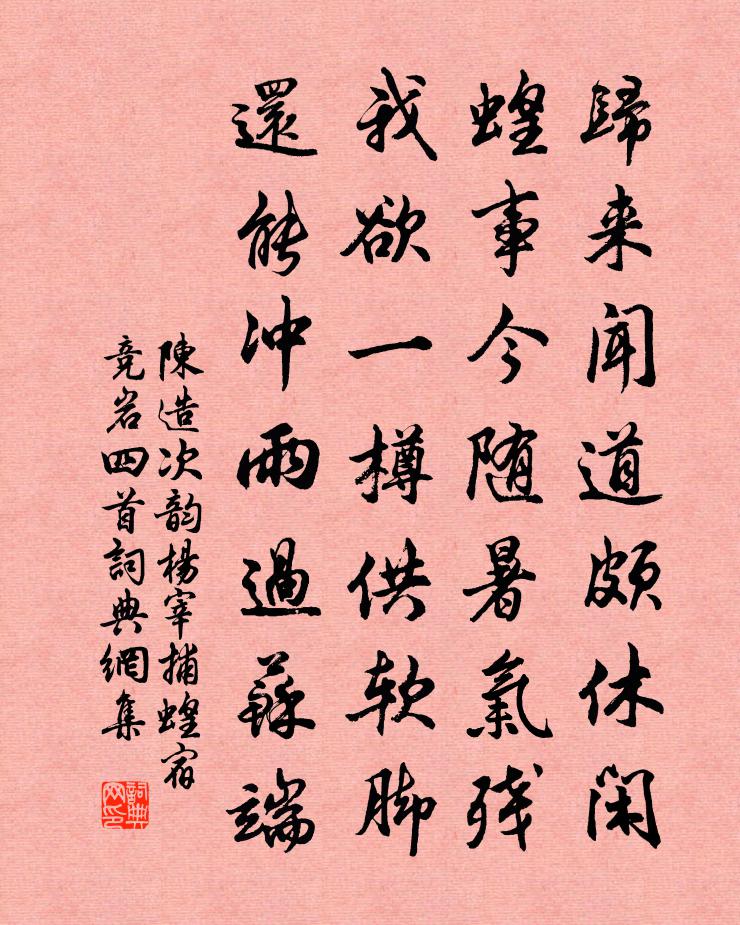 歸来聞道頗休闲
蝗事今随暑氣残
我欲一樽供软脚
還能冲雨過蘇端
陳造次韵楊宰捕蝗宿
竞岩四首詞典網集
詞典网印